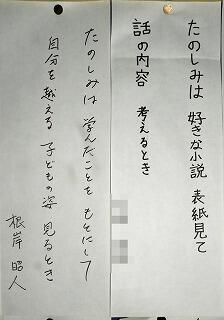 たのしみは 好きな小説 表紙見て
話の内容 考えるとき
たのしみは 学んだことを もとにして
自分を越える 子どもの姿 見るとき
根岸 昭人